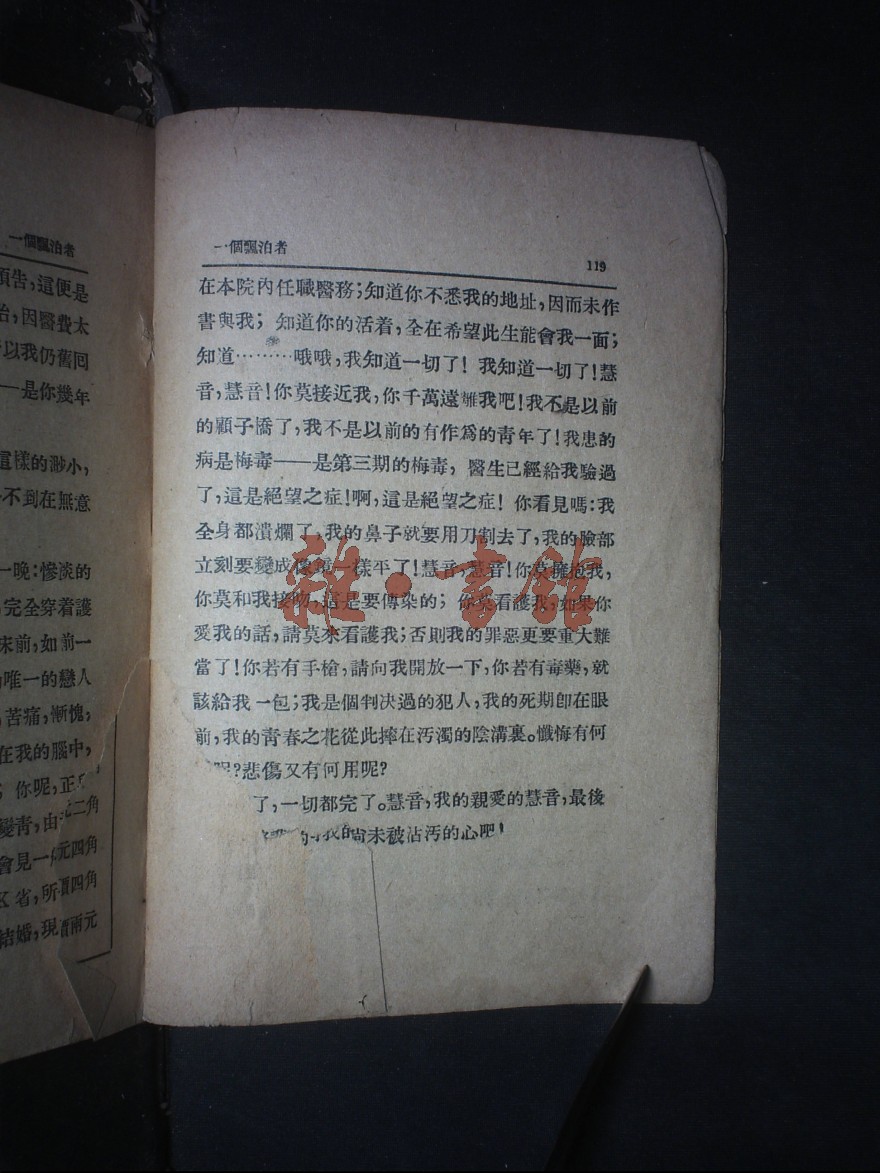 一個飄泊者
預告，這便是
治，因醫費太
以我仍舊囘
——是你幾年
這樣的渺小，
不到在無意
一晚：慘淡的
完全穿着護
床前，如前一
唯一的戀人
苦痛，慚愧，
在我的腦中，
你呢，正
變靑，由
二角
會見一
元四角
省，所
四角
結婚，現
兩元
一個飄泊者
119
在本院內任職醫務；知道你不悉我的地址，因而未作
書與我；知道你的活着，全在希望此生能會我一面；
知道………哦哦，我知道一切了！我知道一切了！慧
音，慧音！你莫接近我，你千萬遠離我吧！我不是以前
的顧子憍了，我不是以前的有作爲的靑年了！我患的
病是梅毒——是第三期的梅毒，醫生已經給我驗過
了，這是絕望之症！啊，這是絕望之症！你看見嗎：我
全身都潰爛了，我的鼻子就要用刀割去了，我的臉部
立刻要變成像鏡一樣平了！慧音，慧音！你莫擁抱我，
你莫和我接吻，這是要傳染的；你莫看護我，如果你
愛我的話，請莫來看護我；否則我的罪惡更要重大難
當了！你若有手槍，請向我開放一下，你若有毒藥，就
該給我一包；我是個判决過的犯人，我的死期卽在眼
前，我的靑春之花從此摔在汚濁的陰溝裏。懺悔有何
呢？悲傷又有何用呢？
了，一切都完了。慧音，我的親愛的慧音，最後
我的尙未被沾汚的心吧！
雜·書館